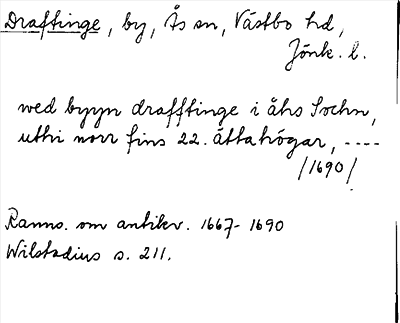 Draftinge, by, Ås sn, Västbo hd,
Jönk. l.
wed byyn drafftinge i åhs Sochn,
uthi norr fins 22. ättahögar, ----
/1690/
Ranns. om antikv. 1667-1690
Wilstadius s. 211.